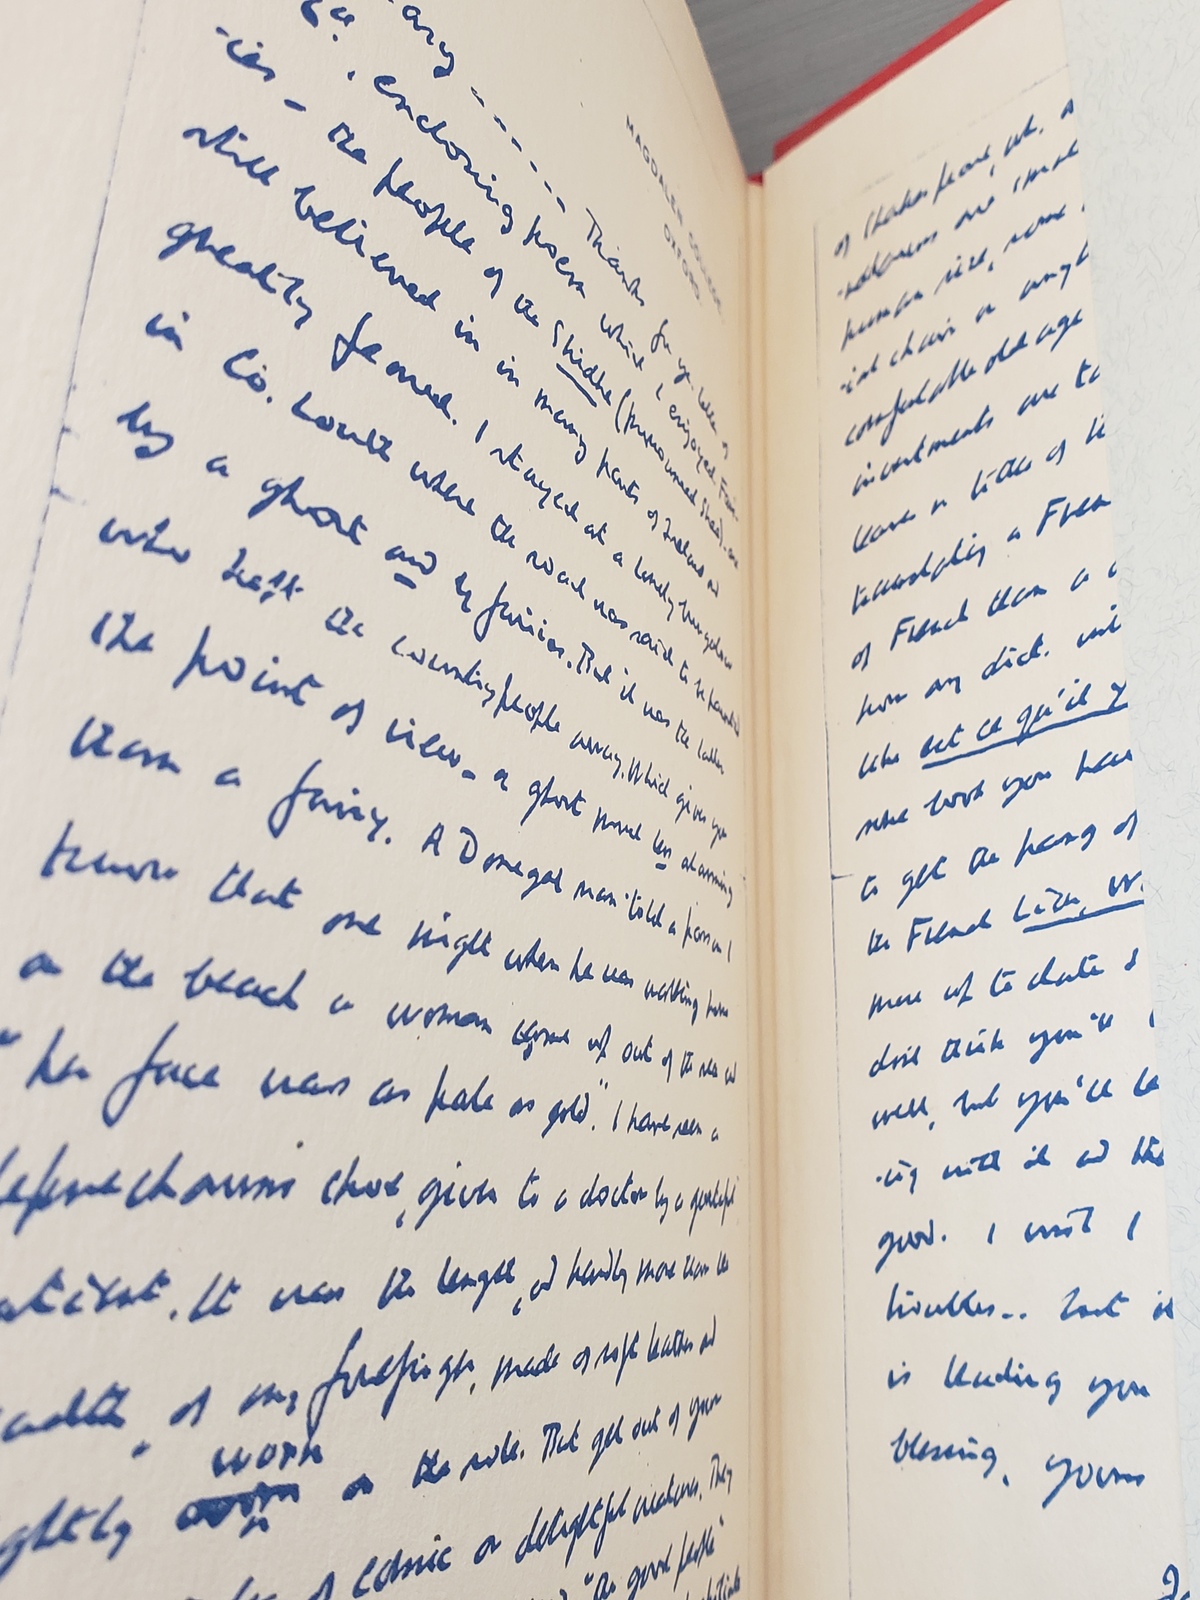 MAGDALEN COLLEGE
OXFORD
ary ------ Thanks for yr. letter of
enclosing poem which I enjoyed. Fair-
-ies - the people of the Shidhe (pronounced Shee) - are
still believed in in many parts of Ireland and
greatly feared. I stayed at a lonely bungalow
in Co. Louth where the road was said to be haunted
by a ghost and by fairies. But it was the latter
who kept the country people away. Which gives you
the point of view - a ghost much less alarming
than a fairy. A Donegal man told a parson I
know that one night when he was walking home
on the beach a woman came up out of the sea and
"her face was as pale as gold". I have seen a
leprechaun's shoe, given to a doctor by a grateful
patient. It was the length, and hardly more than the
breadth, of my forefinger, made of soft leather and
slightly worn on the sole. But get out of your
of comic or delightful creatures. They
"the good people"
of Shakespeare, etc.
human size, some
-ist chair or any
comfortable old age
investments are to
learn a little of
translating a Fren
of French than a
from any dict. with
like est ce qu'il y
some book you have
to get the hang of
the French Lion, W.
more up to date &
don't think you'll
well, but you'll be
-ing with it and the
good. I wish I
troubles.. but it
is leading you
blessing, yours